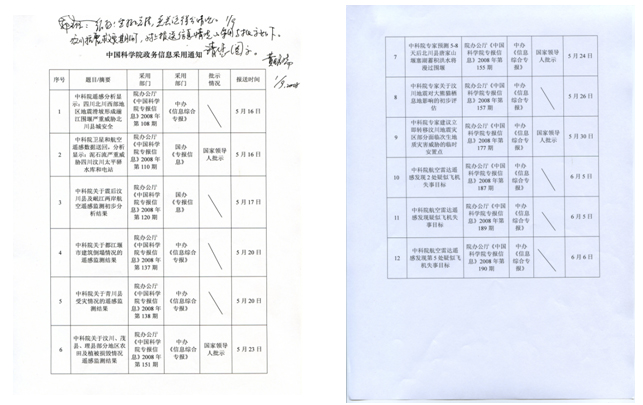 中国科学院政务信息采用通知
序号 题目/摘要 采用部门 采用部门 批示情况 报送时间
1 中科院遥感分析显示:四川北川西部地区地震滑坡形成雍江围堰严重威胁北川县城安全 院办公厅《中国科学院专报信息》2008年第108期 中办《信息综合专报》 5月16日
2 中科院卫星和航空遥感数据送回,分析显示:泥石流严重威胁四川汶川太平驿水库和电站 院办公厅《中国科学院专报信息》2008年第110期 国办《专报信息》 国家领导人批示 5月16日
3 中科院关于震后汶川县及岷江两岸航空遥感监测初步分析结果 院办公厅《中国科学院专报信息》2008年第120期 国办《专报信息》 5月17日
4 中科院关于都江堰市建筑倒塌情况的遥感监测结果 院办公厅《中国科学院专报信息》2008年第137期 中办《信息综合专报》 5月20日
5 中科院关于青川县受灾情况的遥感监测结果 院办公厅《中国科学院专报信息》2008年第138期 中办《信息综合专报》 5月20日
6 中科院关于汶川、茂县、理县部分地区农田及植被损毁情况遥感监测结果 院办公厅《中国科学院专报信息》2008年第151期 中办《信息综合专报》 国家领导人批示 5月23日
7 中科院专家预测5-8天后北川县唐家山堰塞湖蓄积洪水将漫过围堰 院办公厅《中国科学院专报信息》2008年第155期 中办《信息综合专报》 国家领导人批示 5月24日
8 中科院专家关于汶川地震对大熊猫栖息地影响的初步评估 院办公厅《中国科学院专报信息》2008年第157期 中办《信息综合专报》 5月26日
9 中科院专家建议立即转移汶川地震灾区部分面临次生地质灾害威胁的临时安置点 院办公厅《中国科学院专报信息》2008年第177期 中办《信息综合专报》 国家领导人批示 5月30日
10 中科院航空雷达遥感发现2处疑似飞机失事目标 院办公厅《中国科学院专报信息》2008年第187期 中办《信息综合专报》 6月5日
11 中科院航空雷达遥感发现疑似飞机失事目标 院办公厅《中国科学院专报信息》2008年第189期 中办《信息综合专报》 6月5日
12 中科院航空雷达遥感发现第5处疑似飞机失事目标 院办公厅《中国科学院专报信息》2008年第190期 中办《信息综合专报》 6月6日